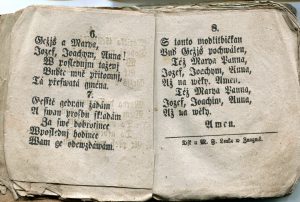 6.
Gežjš a Marya,
Jozef, Joachym, Anna!
W poslednjm tażenj
Buďte mně přjtomnj,
Tá přeswatá gména.
7.
Gesstě gednau žádám
A swau prosbu skládám
Za swé dobrotince
Wposlednj hodince
Wam ge odewzdáwám.
8.
S tauto modlitbičkau
Buď Gežjš pochwálen,
Též Marya Panna,
Jozef, Joachym, Anna,
Až na wěky. Amen,
Též Marya Panna,
Jozef, Joachim, Anna,
Až na wěky.
Amen.
Tisk u M. F. Lenle w Znogmě.